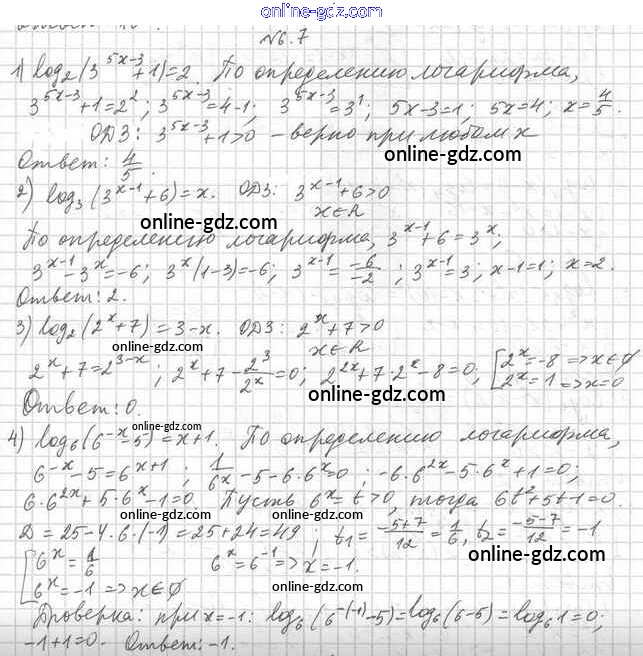 online-gdz.com
№6.7
1) log₂(3^(5x-3)+1)=2. По определению логарифма,
3^(5x-3)+1=2²; 3^(5x-3)=4-1; 3^(5x-3)=3¹; 5x-3=1; 5x=4; x=4/5.
ОДЗ: 3^(5x-3)+1>0 – верно при любом x
Ответ: 4/5.
online-gdz.com
2) log₃(3^(x-1)+6)=x. ОДЗ: 3^(x-1)+6>0
x∈R
online-gdz.com
По определению логарифма, 3^(x-1)+6=3^x;
3^(x-1)-3^x=-6; 3^x(1-3)=-6; 3^(x-1)=-6/-2; 3^(x-1)=3; x-1=1; x=2.
Ответ: 2.
online-gdz.com
3) log₂(2^x+7)=3-x. ОДЗ: 2^x+7>0
x∈R
online-gdz.com
2^x+7=2^(3-x); 2^x+7-2³/2^x=0; 2^(2x)+7·2^x-8=0; [2^x=-8=>x∈∅
2^x=1=>x=0
online-gdz.com
Ответ: 0.
online-gdz.com
4) log₆(6^(-x)-5)=x+1. По определению логарифма,
6^(-x)-5=6^(x+1); 1/6^x-5-6·6^x=0; -6·6^(2x)-5·6^x+1=0;
online-gdz.com
6·6^(2x)+5·6^x-1=0 Пусть 6^x=t>0, тогда 6t²+5t-1=0.
Д=25-4·6·(-1)=25+24=49; t₁=(-5+7)/12=1/6, t₂=(-5-7)/12=-1
online-gdz.com
[6^x=1/6 6^x=6^(-1)=>x=-1.
6^x=-1=>x∈∅
online-gdz.com
Проверка: при x=-1: log₆(6^(-(-1))-5)=log₆(6-5)=log₆1=0;
-1+1=0. Ответ: -1.
online-gdz.com